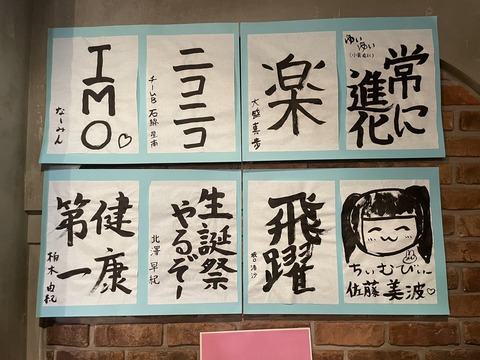 IMO♡
なーみん
ニコニコ
チームB 石綿星南
楽
大盛真歩
常に
進化
ゆいゆい
(小栗有以)
健康
第一
柏木由紀
生誕祭
やるぞー
北澤早紀
飛躍
ちぃむびぃ
佐藤美波♡